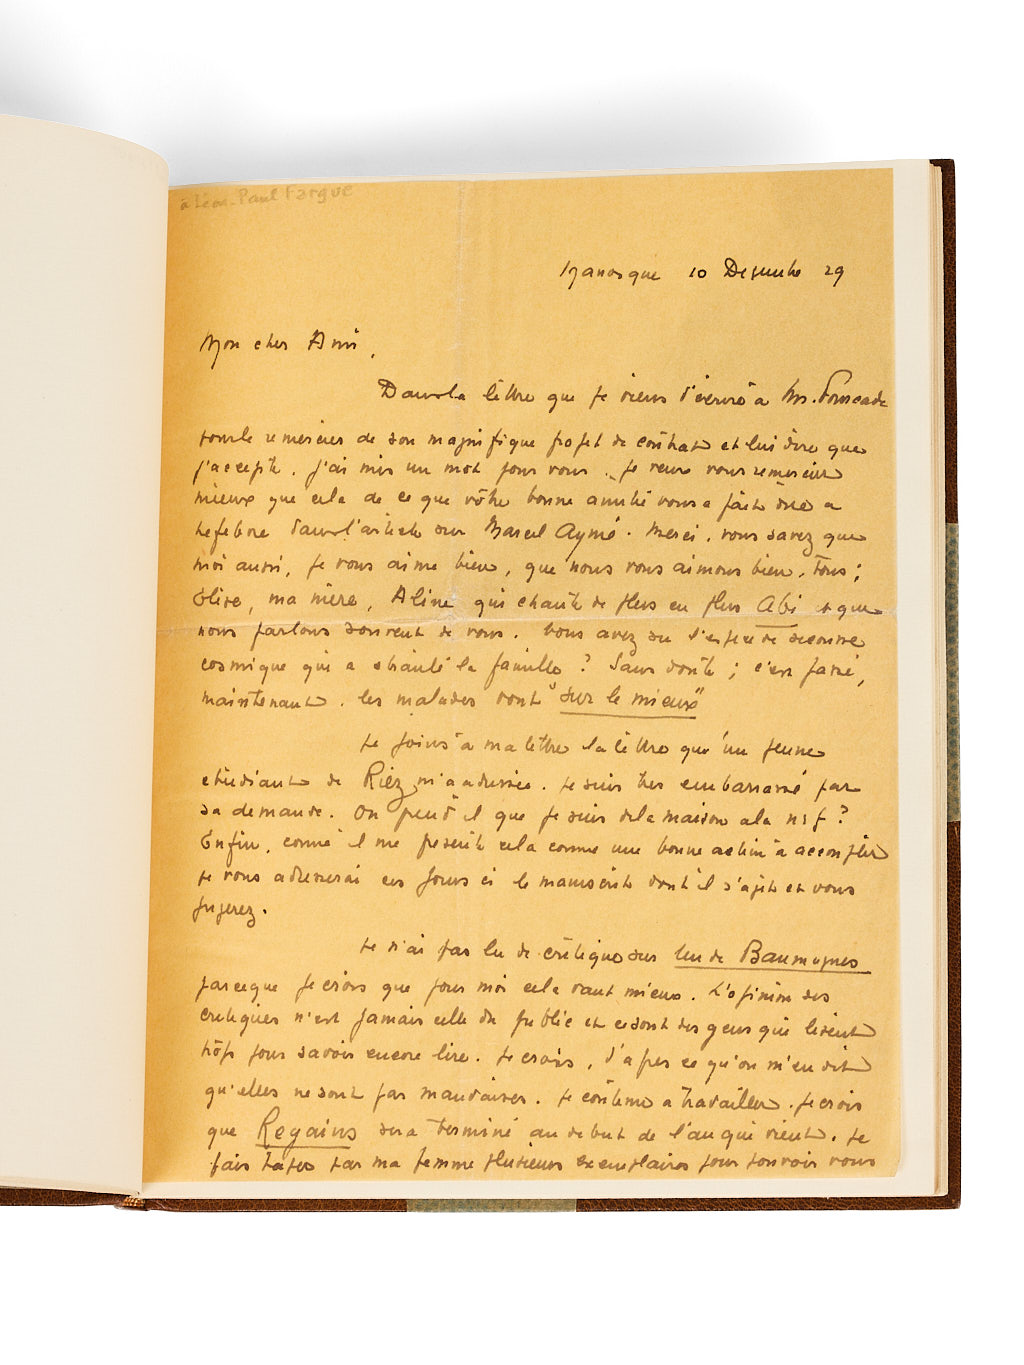 à Léon-Paul Fargue
Manosque 10 Decembre 29
Mon cher Ami,
Dans la lettre que je viens d'envoyer à Mr.
pour le remercier de son magnifique projet de contrat et lui dire que
j'accepte. j'ai mis un mot pour vous. je veux vous remercier
mieux que cela de ce que vôtre bonne amitié vous a fait dire a
Lefebvre dans l'article sur Marcel Aymé. Merci, vous savez que
moi aussi, je vous aime bien, que nous vous aimons bien, tous;
Elise, ma mère, Aline qui chante de plus en plus Abi et que
nous parlons souvent de vous. Vous avez su l'espèce de
cosmique qui a ébranlé la famille? Sans doute; c'est passé,
maintenant. les malades sont "sur le mieux"
Je joins à ma lettre la lettre qu'un jeune
etudiant de Riez m'a adressée. Je suis tres embarrassé par
sa demande. On peut il que je suis de la maison a la nrf?
Enfin, comme il me presente cela comme une bonne action à accomplir
je vous adresserai ces jours ci le manuscrit dont il s'agit et vous
jugerez.
Je n'ai pas lu de critique sur Un de Baumugnes
parceque je crois que pour moi cela vaut mieux. L'opinion des
critiques n'est jamais celle du public et ce sont des gens qui lisent
trop pour savoir encore lire. Je crois, d'apres ce qu'on m'en dit
qu'elles ne sont pas mauvaises. Je continue a travailler. Je crois
que Regains sera terminé au debut de l'an qui vient. Je
fais taper par ma femme plusieurs exemplaires pour pouvoir vous